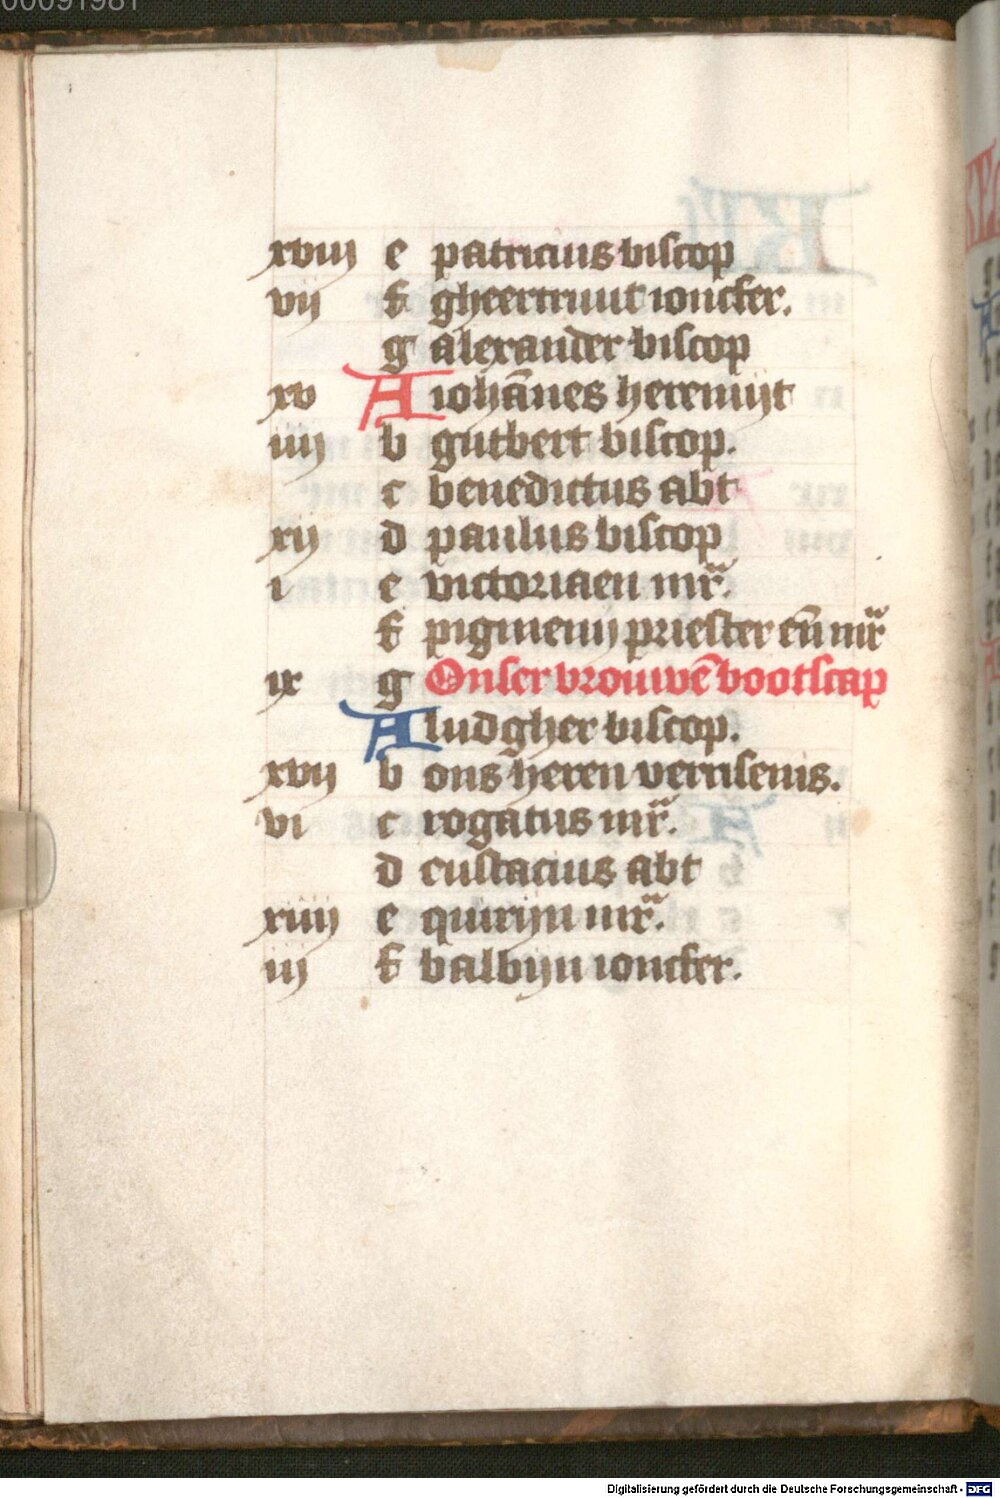 00091981
xviij e patricius biscop
vij f gheertruut ioncfer.
g alexander biscop
xv A iohānes heremijt
iiij b gutbert biscop.
c benedictus abt
xij d paulus biscop
i e victoriaen mr̄.
f pigmenij priester eñ mr̄
ix g Onser vrouwē bootscap
A ludgher biscop.
xvij b ons heren verrisenis.
vi c rogatus mr̄.
d eustacius abt
xiiij e quirijn mr̄.
iij f balbijn ioncfer.
Digitalisierung gefördert durch die Deutsche Forschungsgemeinschaft - DFG